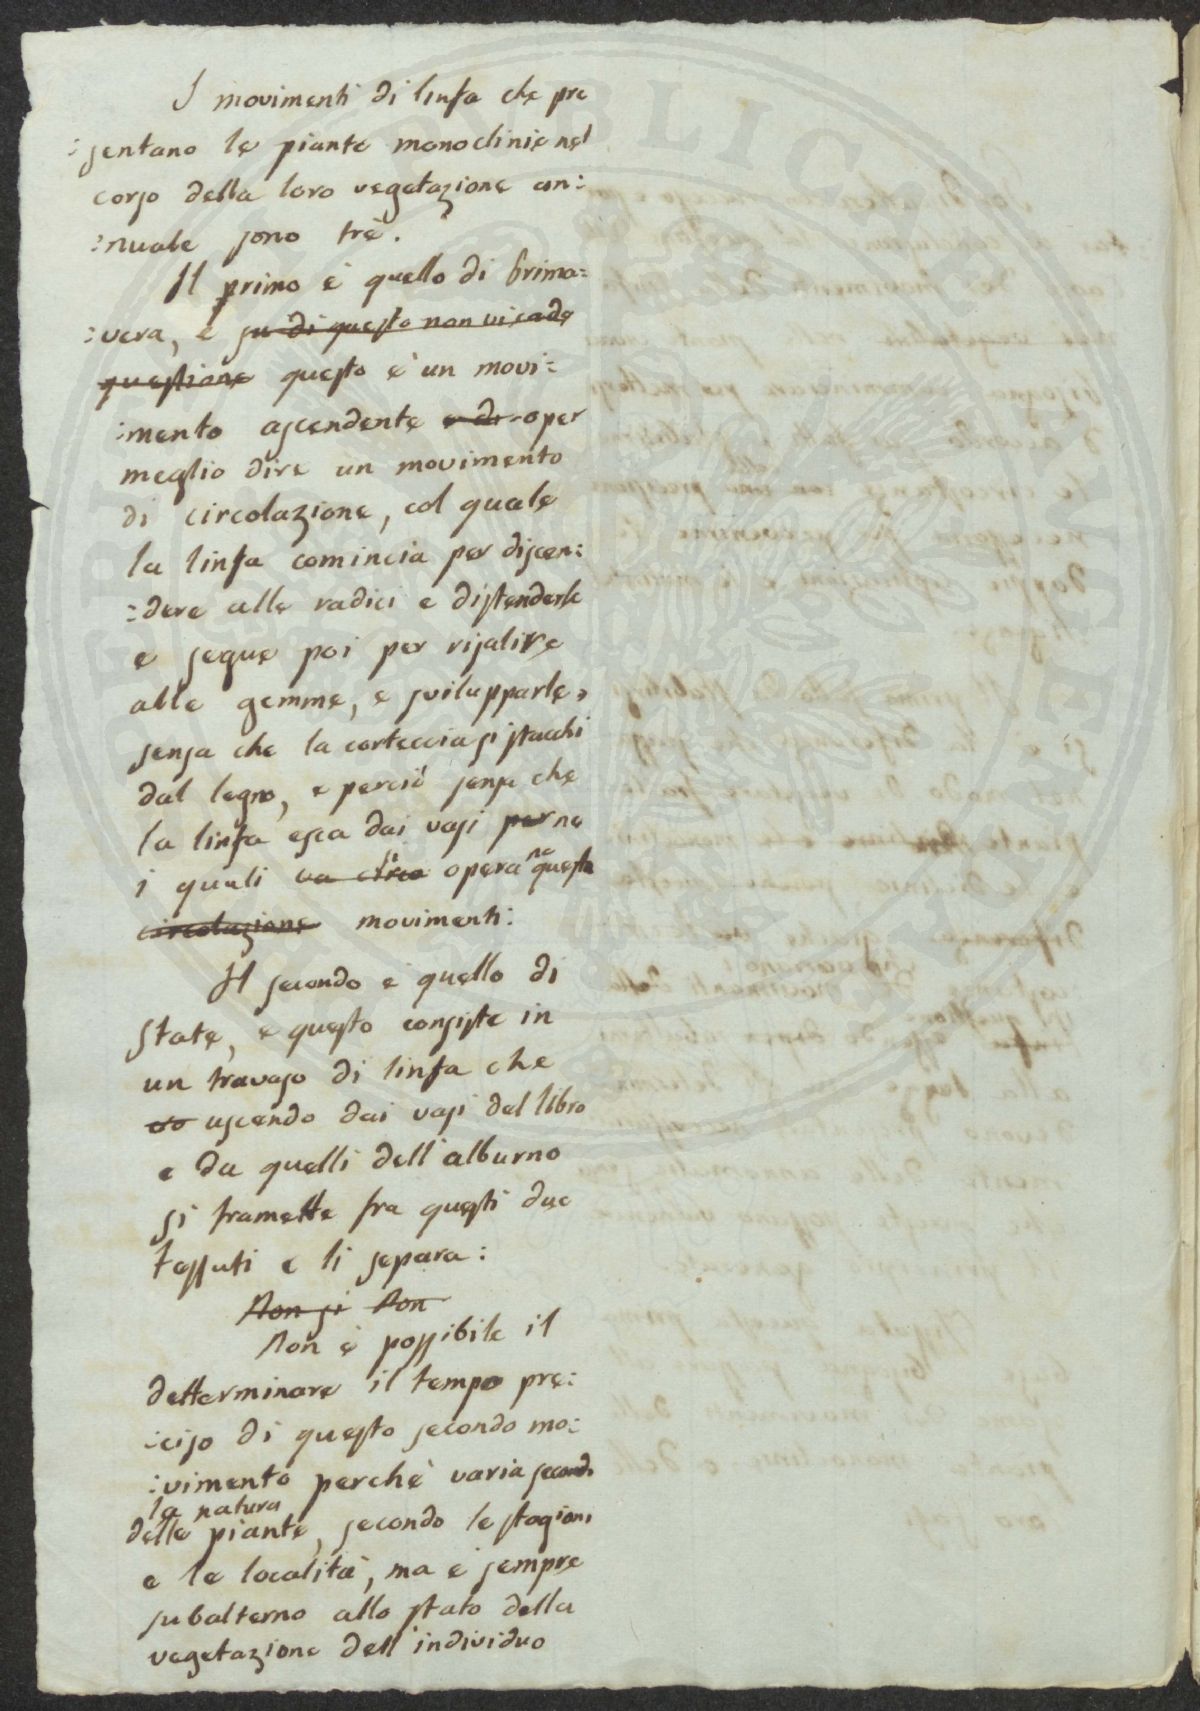 I movimenti di linfa che pre
:sentano le piante monoclinie nel
corso della loro vegetazione an:
:nuale sono trè.
Il primo è quello di prima:
:vera, e su di questo non vi cade
questione questo è un movi:
:mento ascendente e di o per
meglio dire un movimento
di circolazione, col quale
la linfa comincia per discen:
:dere alle radici e distenderle
e segue poi per risalire
alle gemme, e svilupparle,
senza che la corteccia si stacchi
dal legno, e perciò senza che
la linfa esca dai vasi per ne
i quali opera questo
circolazione movimenti:
Il secondo è quello di
state, e questo consiste in
un travaso di linfa che
uscendo dai vasi del libro
e da quelli dell'alburno
si tramette fra questi due
tessuti e li separa:
Non si Non
Non è possibile il
detterminare il tempo pre:
:ciso di questo secondo mo:
:vimento perchè varia secondo
la natura
delle piante, secondo le stagioni
e le località, ma è sempre
subalterno allo stato della
vegetazione dell'individuo